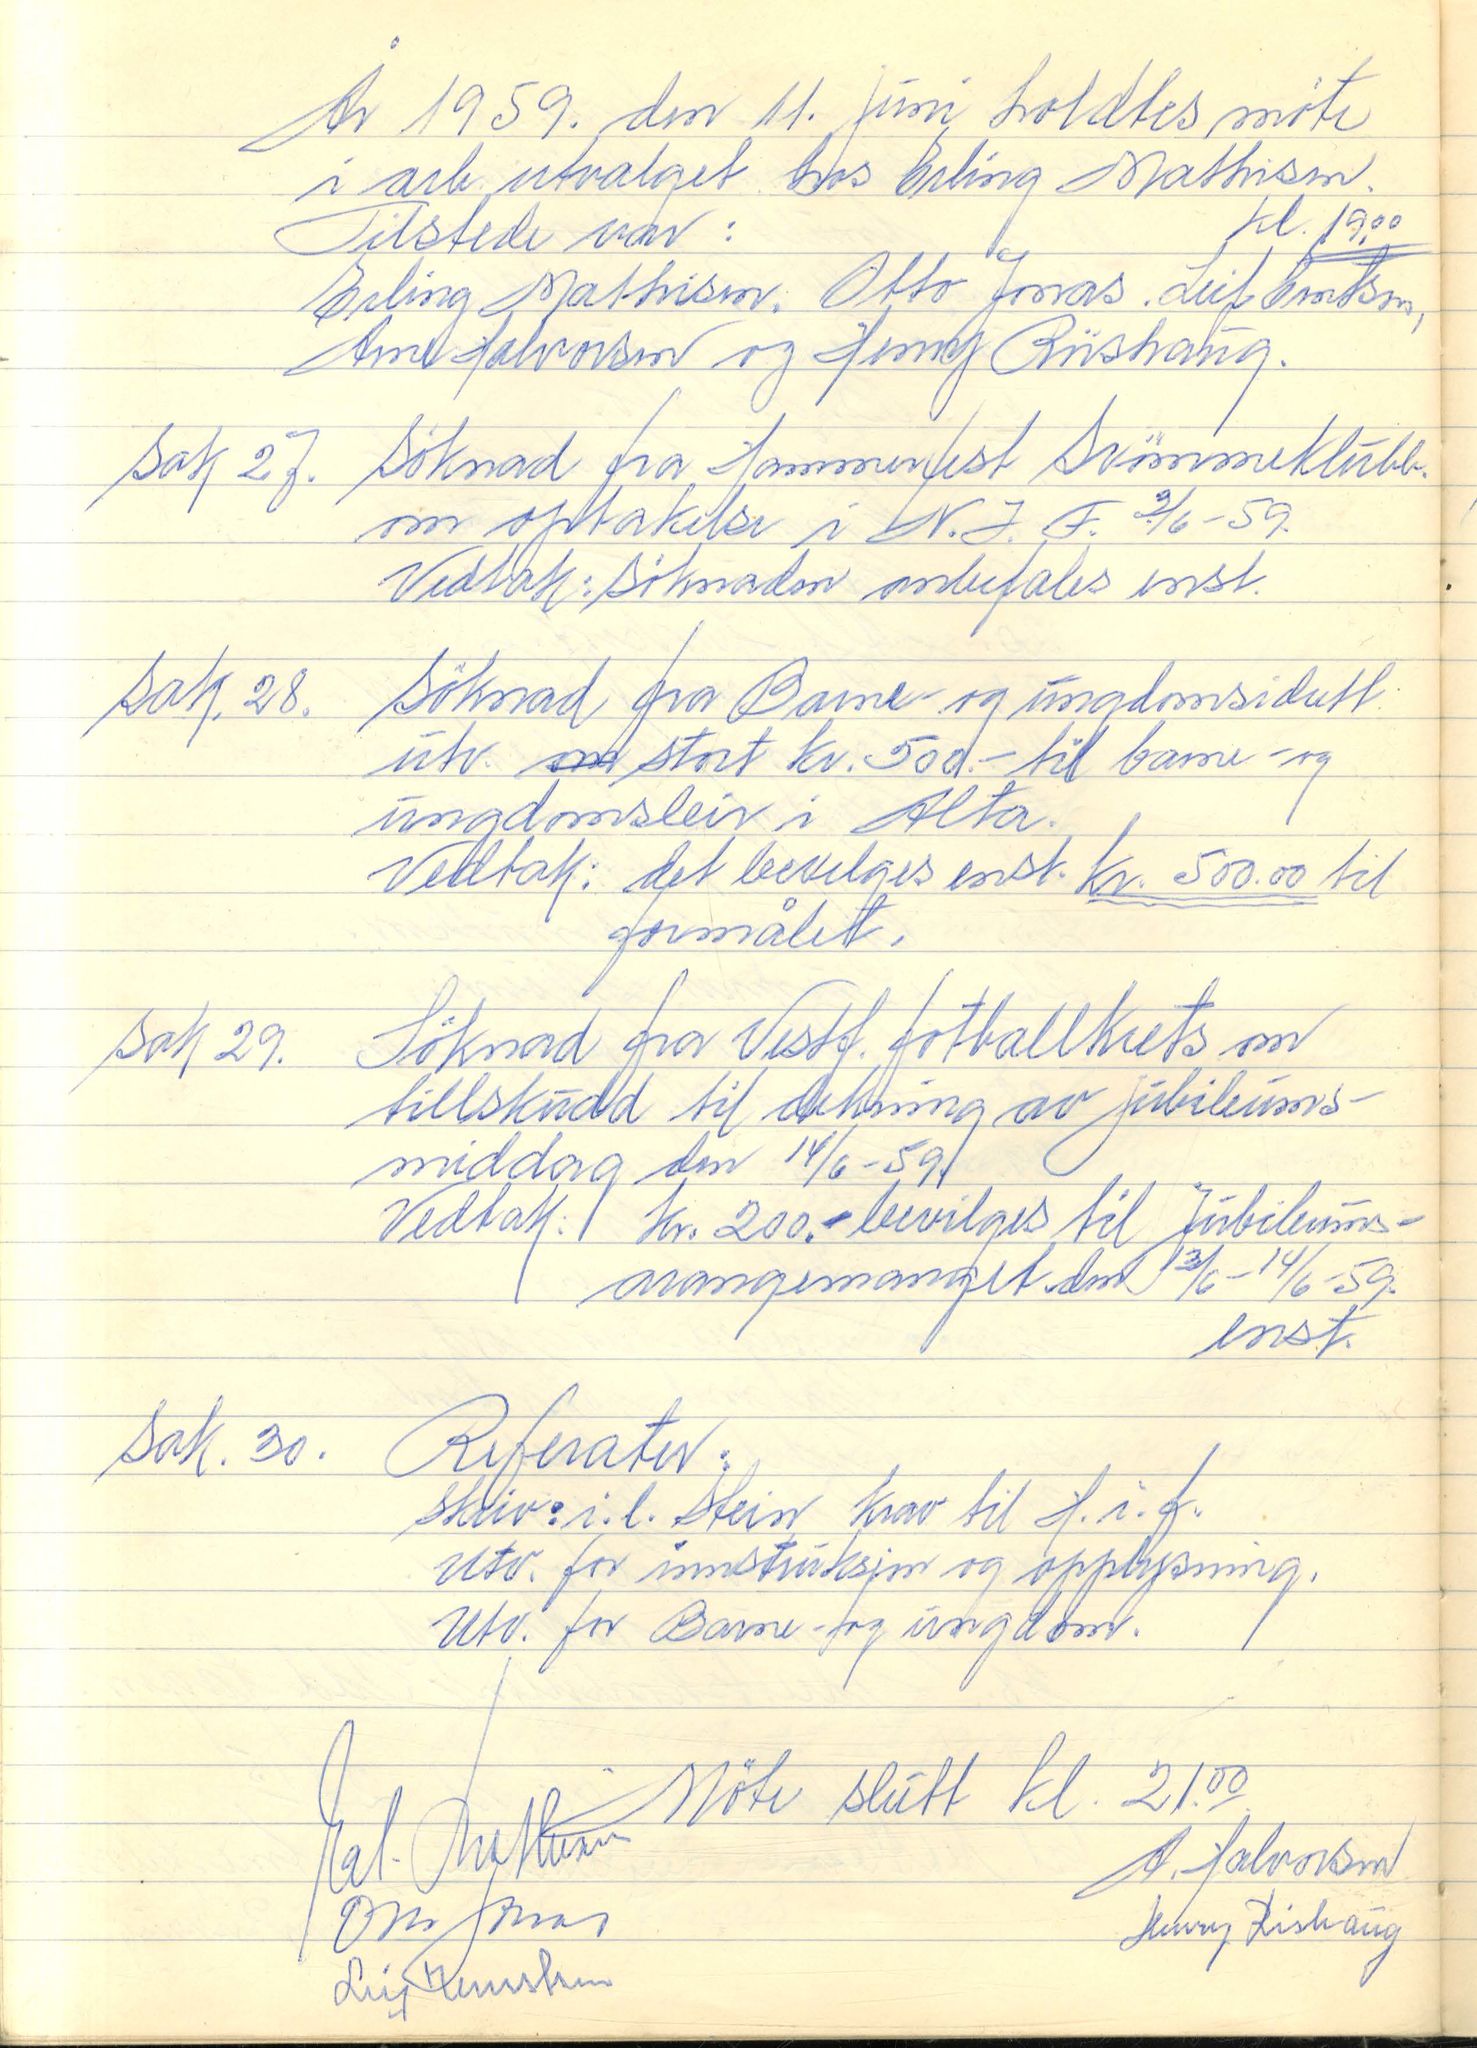 År 1959. den 11. juni holdtes möte
i arb. utvalget hos Erling Mathisen.
Tilstede var: kl. 19.00
Erling Mathisen. Otto Jonas. Leif
Arne Halvorsen og Henry Riishaug.
Sak 27. Söknad fra Hammerfest Svömmeklubb.
om optakelse i N.I.F. 2/6-59.
Vedtak: Söknaden anbefales enst.
Sak. 28. Söknad fra Barne- og ungdomsidrett
utv. stort kr. 500.- til barne- og
ungdomsleir i Alta.
Vedtak: det bevilges enst. kr. 500.00 til
formålet.
Sak 29. Söknad fra Vestf. fotballkrets om
tillskudd til dekning av jubileums-
middag den 14/6-59.
Vedtak: kr. 200.- bevilges til Jubileums-
arangemanget den 13/6-14/6-59.
enst.
Sak. 30. Referater:
Skriv: i.l. Stein krav til H.i.f.
Utv. for instruksjon og opplysning.
Utv. for Barne- og ungdom.
Möte slutt kl. 21.00
A. Halvorsen
Otto Jonas
Henry Rishaug